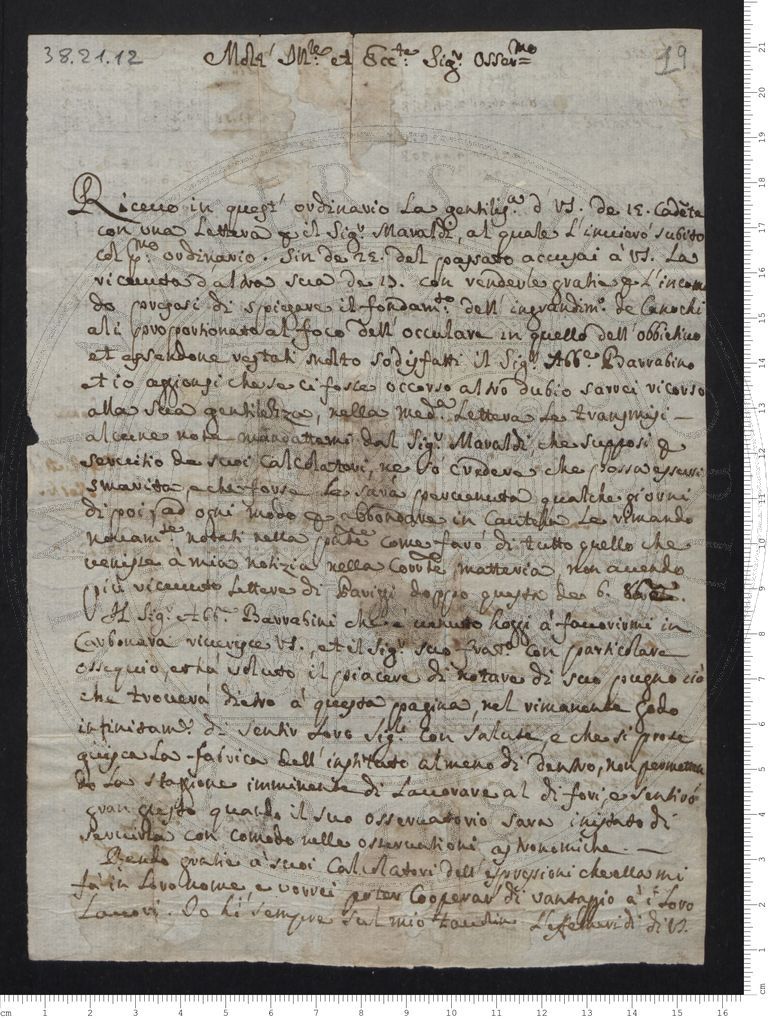 38.21.12
19
Molt' Ill.re et Ecc.te Sig.r Osser.mo
Riceuo in quest' ordinario la gentiliss.a d' VS. de 12. Cadẽte
con una lettera p il Sig.r Maraldi, al quale l'inuierò subito
col p.mo ordinario. Sin de 25. del passato accusai à VS. la
riceuuta d'altra sua de 13. con renderle gratie p l'incom
do presosi di spiegare il fondam.to dell'ingrandim.o de Canochi
ali proportionato al foco dell'occulare in quello dell'obbietiuo
et essendone restati molto sodisfatti il Sig.r Abb.e Barrabino
et io aggionsi che se ci fosse occorso altro dubio sarei ricorso
alla sua gentilezza, nella med.a lettera le transmisi
alcune note mandattemi dal Sig.r Maraldi, che supposi p
seruitio de suoi Calcolatori, ne sò credere che possa essersi
smarita, e che forse le sarà peruenuta qualche giorni
di poi, ad ogni modo p abbondare in Cautella le rimando
nouam.te notati nella pñte come farò di tutto quello che
venisse à mia notizia nella Corrẽte matteria, non auendo
più riceuuto lettere di Pariggi doppo questa de 6.
Il Sig.r Abb.e Barrabini che è venuto hoggi à fauorirmi in
Carbonara riuerisce VS., et il Sig.r suo frat.o con particolare
ossequio, et hà voluto il piacere di notare di suo pugno ciò
che trouerà dietro à questa pagina, nel rimanente godo
infinitam.e di sentir loro Sig.ri con salute, e che si prose
guisca la fabrica dell'instituto almeno di dentro, non permetten
do la staggione imminente di lauorare al di fori, e sentirò
gran gusto quando il suo osseruatorio sarà in istato di
seruirla con comodo nelle osseruationi astronomiche.
Rendo gratie à suoi Calcolatori dell'espressioni che ella mi
fà in loro nome e vorrei poter Cooperar' di vantaggio à i loro
lauori. Io hò sempre sul mio tauolin l'effemeridi di VS.